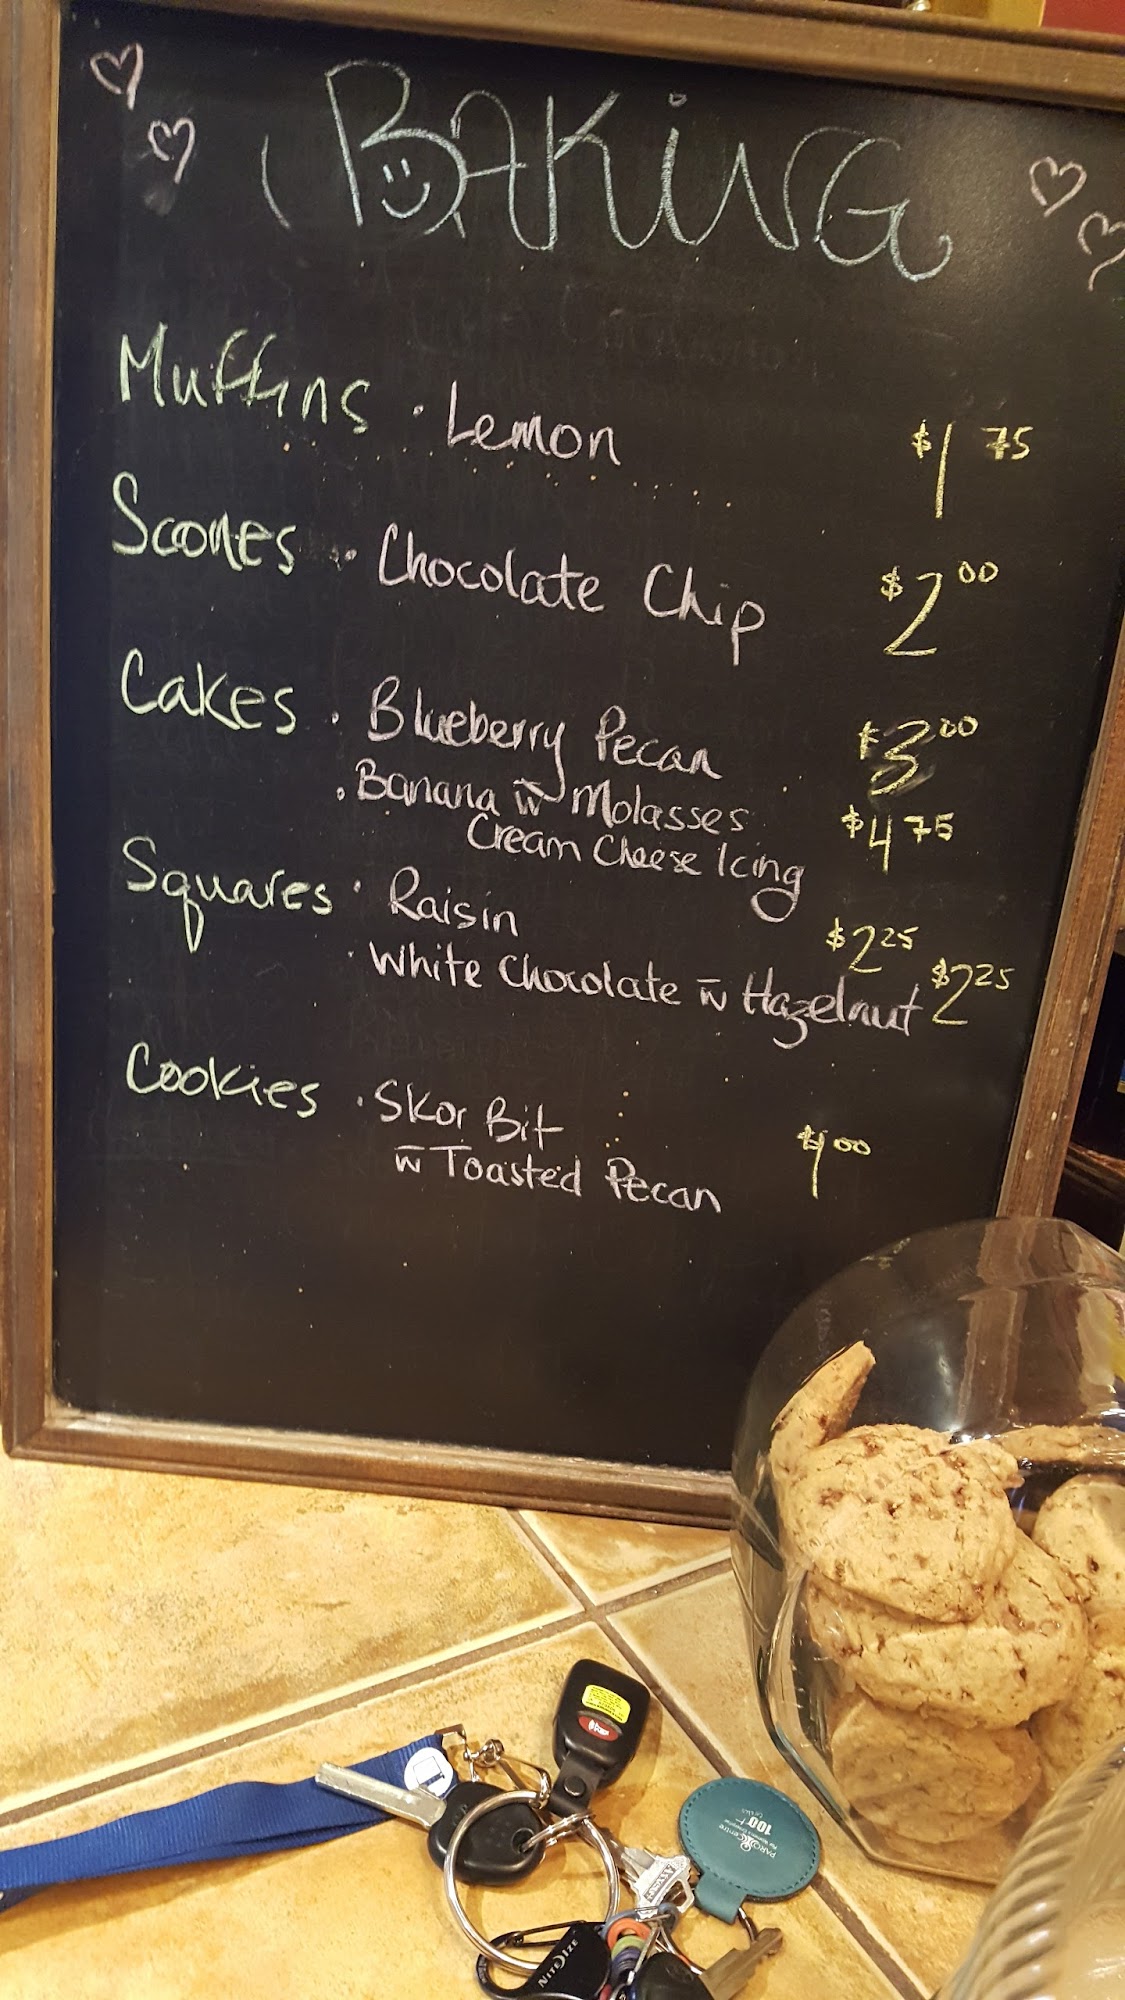 BAKiNG
Muffins · Lemon $1 75
Scones · Chocolate Chip $2 00
Cakes · Blueberry Pecan $3 00
· Banana w̄ Molasses $4 75
Cream Cheese Icing
Squares · Raisin $2 25
· White Chocolate w̄ Hazelnut $2 25
Cookies · Skor Bit $1 00
w̄ Toasted Pecan
PARQ Centre
100
NITE IZE